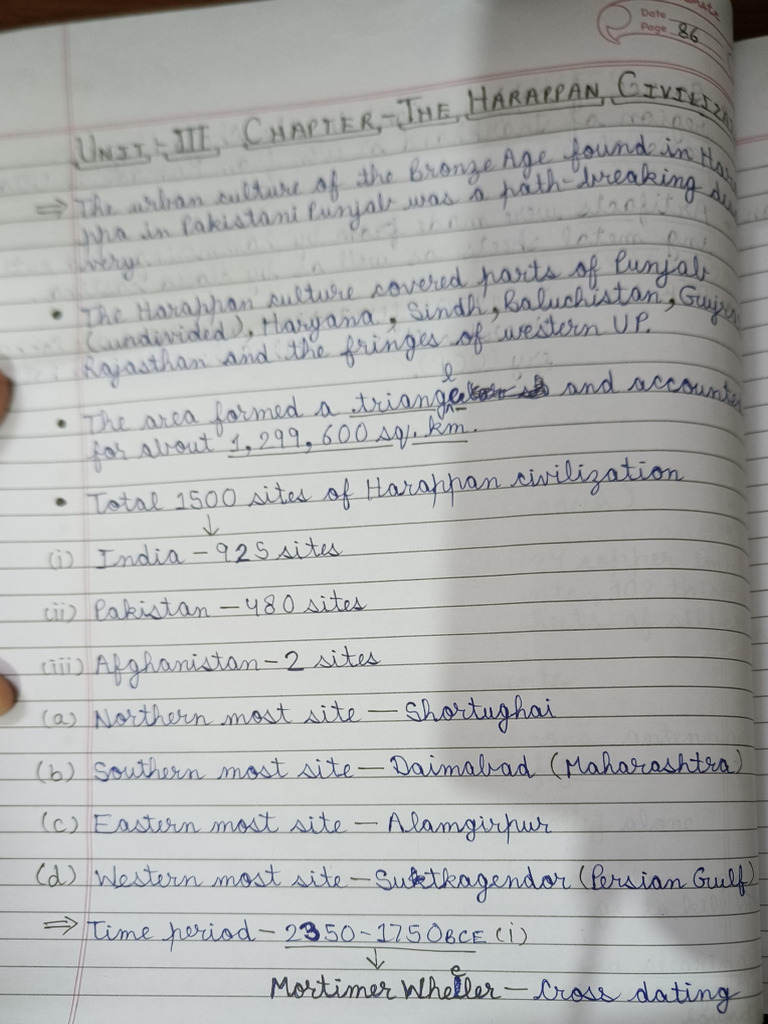 Date
Page 86
UNIT-III, CHAPTER-THE HARAPPAN CIVILIZA
⇒ The urban culture of the Bronze Age found in Hara
ppa in Pakistani Punjab was a path-breaking dis
very
• The Harappan culture covered parts of Punjab
(undivided), Haryana, Sindh, Baluchistan, Gujra
Rajasthan and the fringes of western UP.
• The area formed a triangle and accounte
for about 1,299,600 sq. km.
• Total 1500 sites of Harappan civilization
↓
(i) India - 925 sites
(ii) Pakistan - 480 sites
(iii) Afghanistan - 2 sites
(a) Northern most site - Shortughai
(b) Southern most site - Daimabad (Maharashtra)
(c) Eastern most site - Alamgirpur
(d) Western most site - Suktkagendor (Persian Gulf)
⇒ Time period - 2350-1750BCE (i)
↓
Mortimer Wheeler - Cross dating